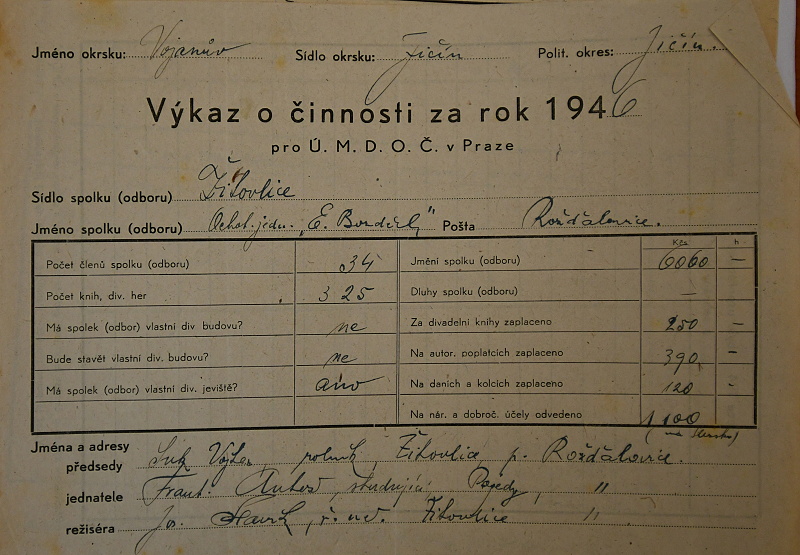 Jméno okrsku: Vojanův Sídlo okrsku: Jičín Polit. okres: Jičín.
Výkaz o činnosti za rok 1946
pro Ú. M. D. O. Č. v Praze
Sídlo spolku (odboru) Žitovlice
Jméno spolku (odboru) Ochot. jedn. "E. " Pošta Rožďalovice.
Kčs h
Počet členů spolku (odboru) 34 Jmění spolku (odboru) 6060 —
Počet knih, div. her 325 Dluhy spolku (odboru) —
Má spolek (odbor) vlastní div budovu? ne Za divadelní knihy zaplaceno 250 —
Bude stavět vlastní div. budovu? ne Na autor. poplatcích zaplaceno 390 —
Má spolek (odbor) vlastní div. jeviště? ano Na daních a kolcích zaplaceno 120 -
Na nár. a dobroč. účely odvedeno 1100
(na )
Jména a adresy
předsedy rolník Žitovlice p. Rožďalovice.
jednatele Frant. studující "
režiséra Jos. Žitovlice "